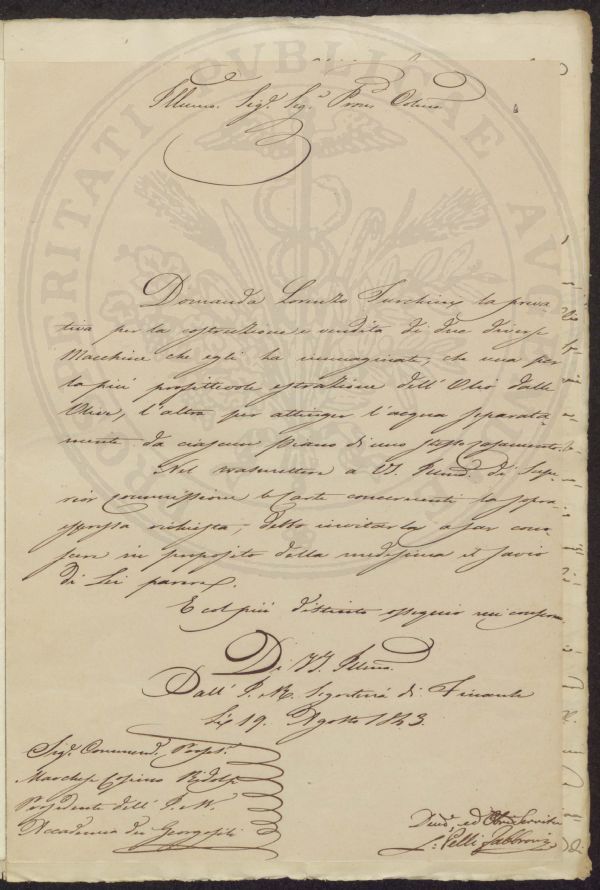 Illmo. Sigr. Sigr. Pron. Colmo.
Domanda Lorenzo Turchini la priva
tiva per la costruzione e vendita di due diverse
Macchine che egli ha immaginate, che una per
la più profittevole estrazione dell' Olio dalle
Olive, l'altra per attinger l'acqua separata-
mente da ciascun piano di uno stesso casamento.
Nel trasmettere a VS. Illma. di Supe
rior commissione le Carte concernenti la sopra
espressa richiesta, debbo invitarla a far cono
scere in proposito della medesima il savio
di Lei parere.
E col più distinto ossequio mi confermo
Di VS. Illma.
Dall' I. e R. Segreteria di Finanze
Li 19. Agosto 1843.
Sigr. Commend. Profr.
Marchese Cosimo Ridolfi
Presidente dell' I. e R.
Accademia dei Georgofili
Devmo. ed Obbmo Servitore
L. Pelli Fabbroni
PROSPERITATI PUBLICAE AUGENDAE